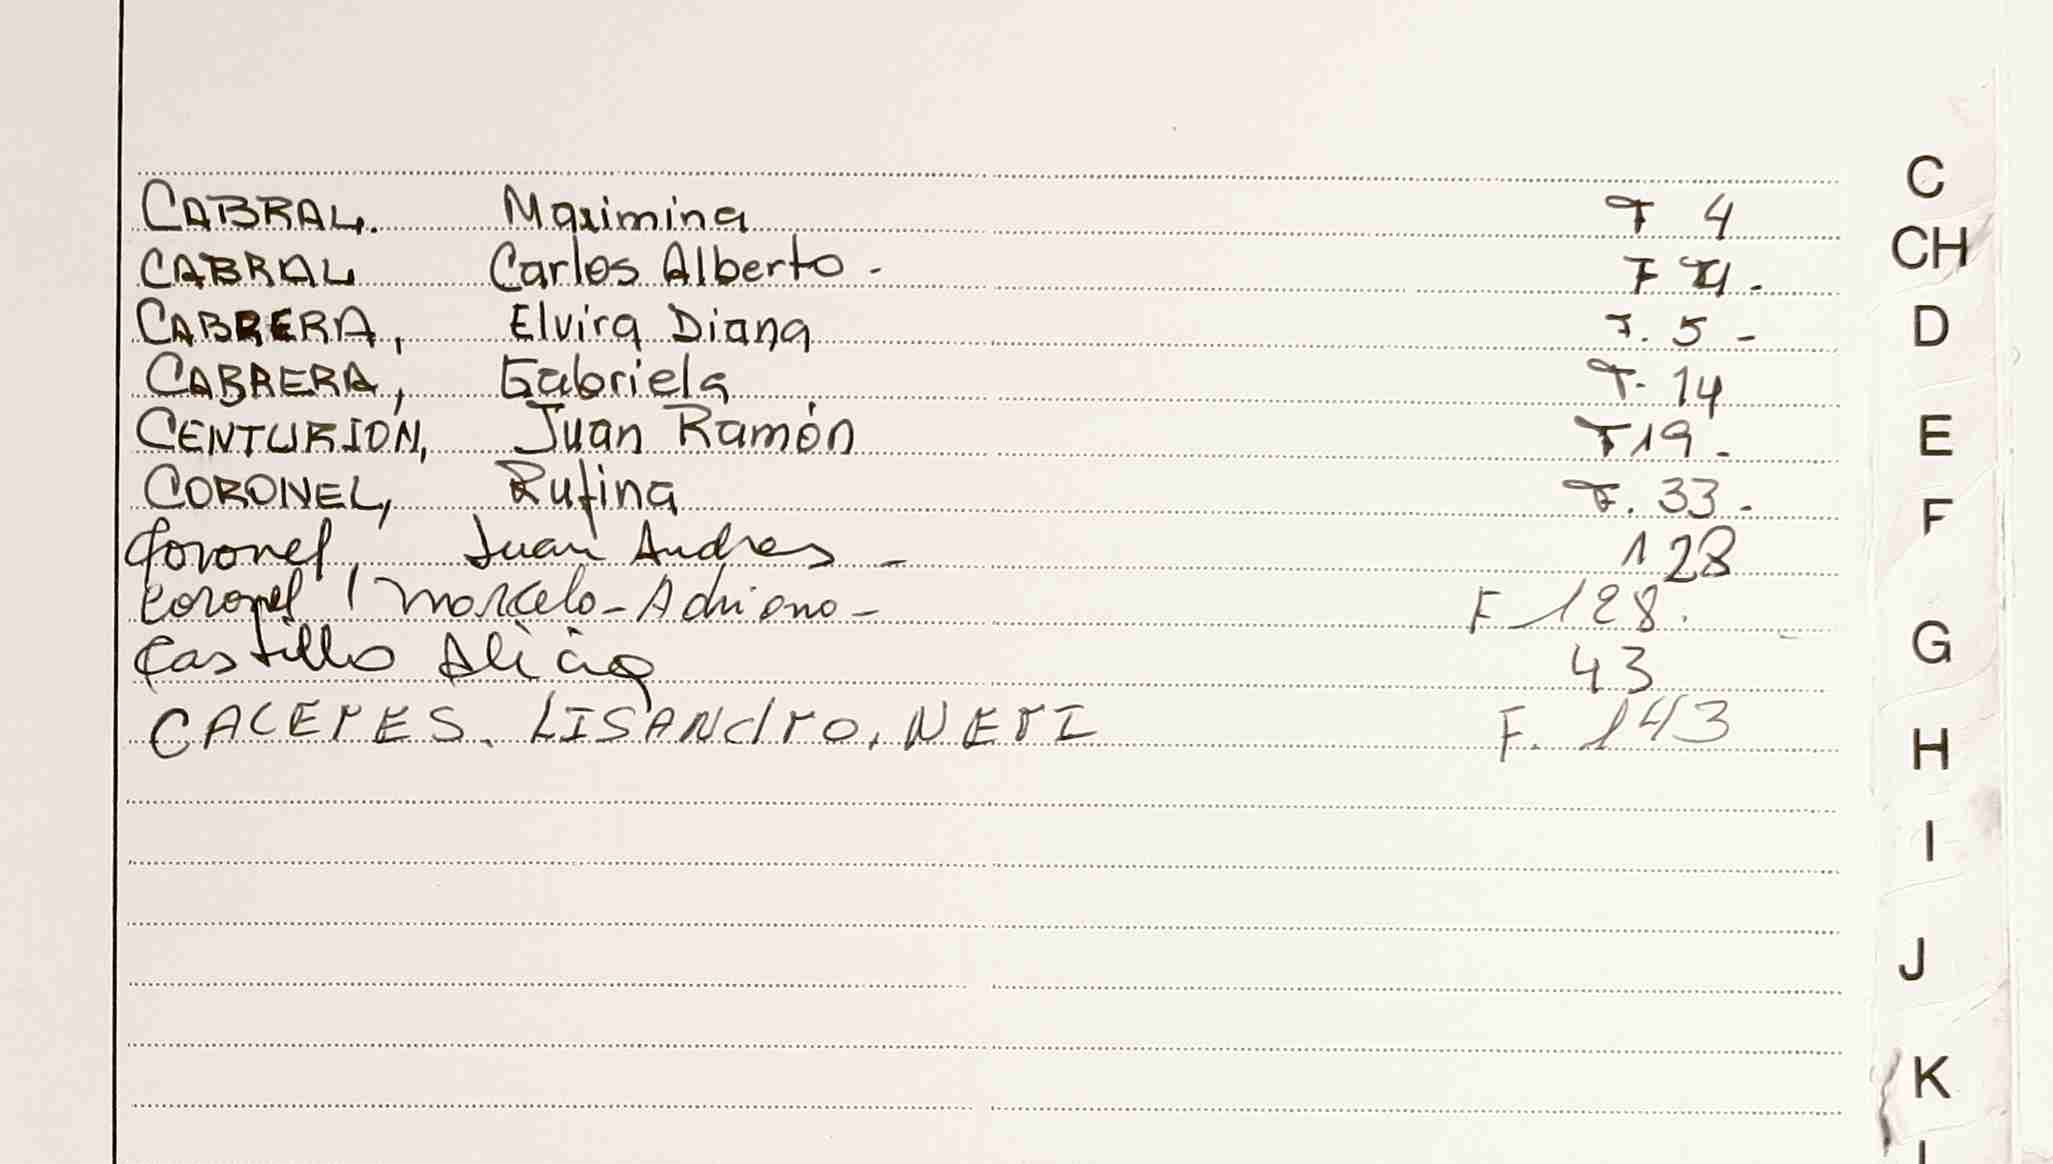 CABRAL. Maximina F 4
CABRAL Carlos Alberto - F 4.
CABRERA, Elvira Diana F. 5 -
CABRERA, Gabriela F. 14
CENTURIÓN, Juan Ramón F 19 -
CORONEL, Rufina F. 33 -
Coronel, Juan Andres - 128
Coronel, Marcelo - Adriano - F 128.
Castillo Alicia 43
CACEreS. LISANdro. NErI F. 143
C
CH
D
E
F
G
H
I
J
K